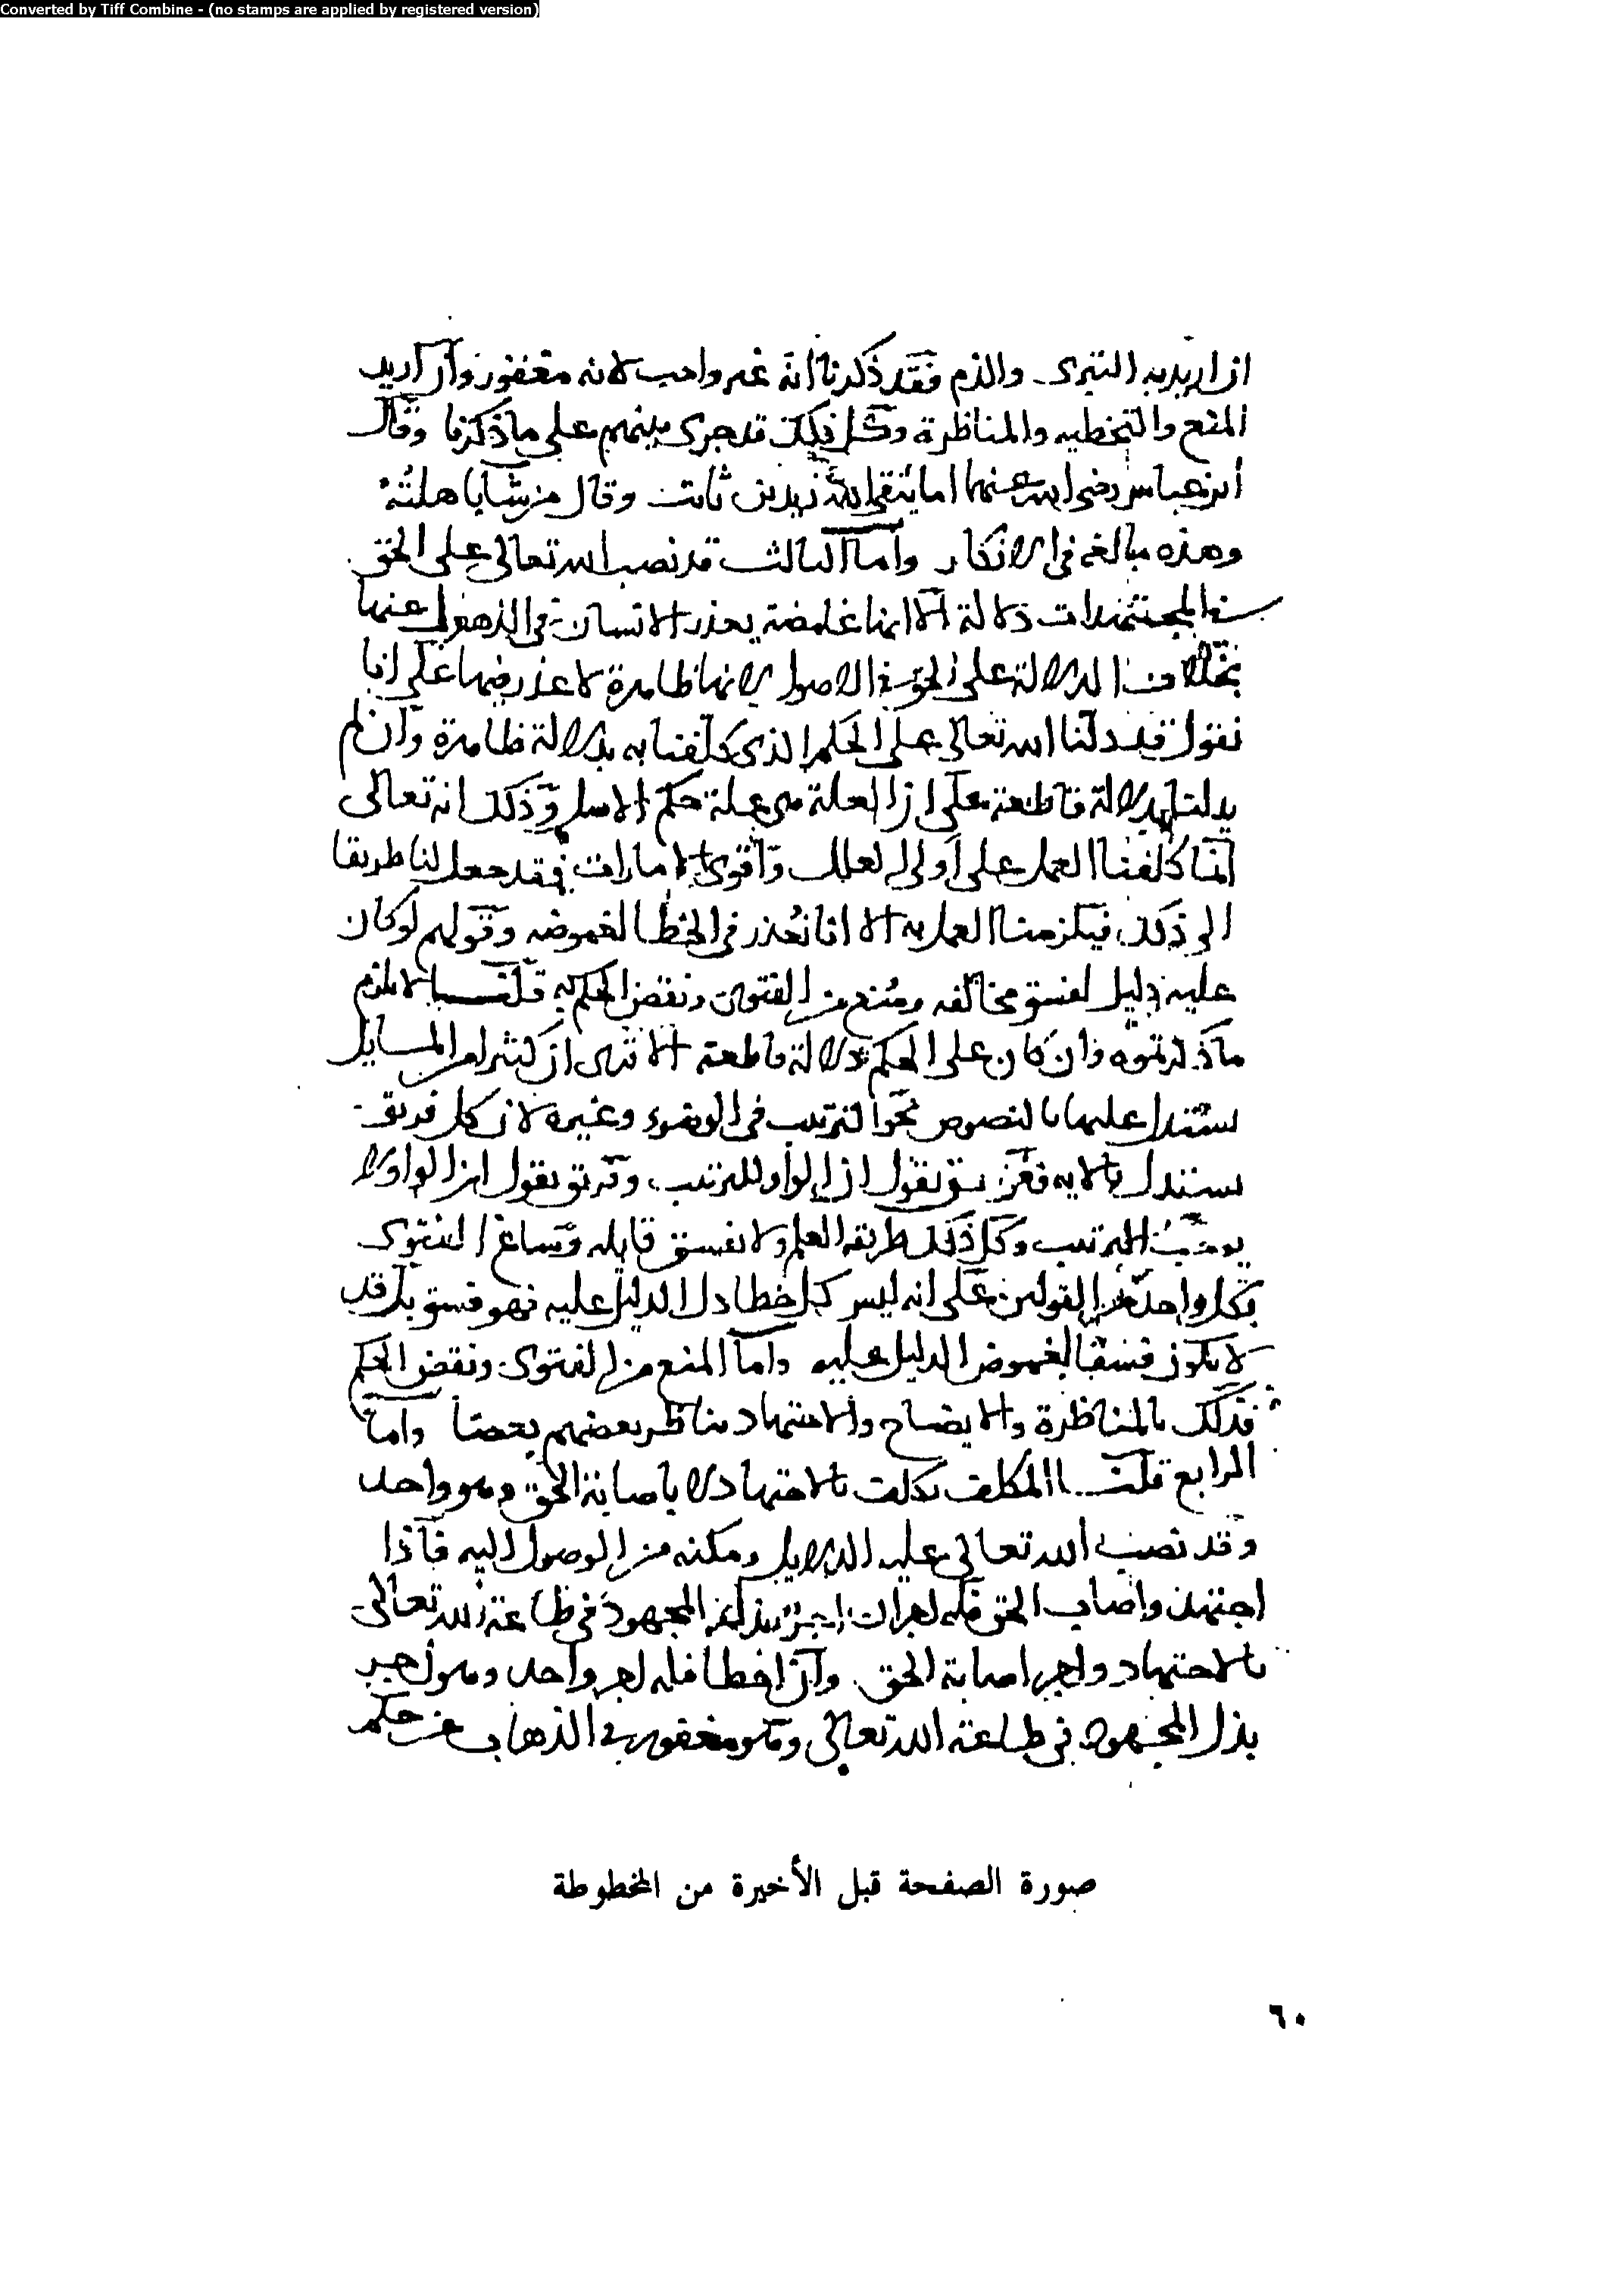 Converted by Tiff Combine - (no stamps are applied by registered version)
ان اريد به التبرى والذم فقد ذكرنا انه غير واجب لانه مغفور وان اريد
المنع والتخطيه والمناظرة وكل ذلك قد جرى بينهم على ما ذكرنا وقال
ابن عباس رضى الله عنهما اما يتقى الله زيد بن ثابت وقال من شا باهلته
وهذه مبالغه فى الانكار واما الثالث قد نصب الله تعالى على الحق
فى المجتهدات دلالة الا انها غامضة يعذر الانسان فى الذهول عنها
بخلاف الدلالة على الحق فى الاصول لانها ظاهرة لا عذر فيها على انا
نقول قد دلنا الله تعالى على الحكم الذى كلفنا به بدلالة ظاهرة وان لم
يدلنا بدلالة قاطعة على ان العلة هى علة حكم الاصل وذلك انه تعالى
انما كلفنا العمل على اولى العلل واقوى الامارات فقد جعل لنا طريقا
الى ذلك فيلزمنا العمل به الا انا نعذر فى الخطا لغموضه وقولهم لو كان
عليه دليل لفسق مخالفه ومنع من الفتوى ونقض الحكم به قلنا لا يلزم
ما ذكرتموه وان كان على الحكم دلالة قاطعة الا ترى ان كثيرا من المسايل
يستدل عليها بالنصوص نحو الترتيب فى الوضوء وغيره لان كل فريق
يستدل بالايه ففريق يقول ان الواو للترتيب وفريق يقول ان الواو لا
يوجب الترتيب وكل ذلك طريقه العلم ولا يفسق قايله وتساغ الفتوى
بكل واحد من القولين على انه ليس كل خطا دل الدليل عليه فهو فسق بل قد
لا يكون فسقا لغموض الدليل عليه واما المنع من الفتوى ونقض الحكم
فذلك بالمناظرة والايضاح والاجتهاد يناظر بعضهم بعضا واما
الرابع قلنا المكلف يكلف بالاجتهاد لا باصابة الحق وهو واحد
وقد نصب الله تعالى عليه الدلايل ومكنه من الوصول اليه فاذا
اجتهد واصاب الحق فله اجران اجر بذل المجهود فى طاعة الله تعالى
بالاجتهاد واجر اصابة الحق وان اخطا فله اجر واحد وهو اجر
بذل المجهود فى طاعة الله تعالى وهو مغفور فى الذهاب عن حكم
صورة الصفحة قبل الأخيرة من المخطوطة
٦٠